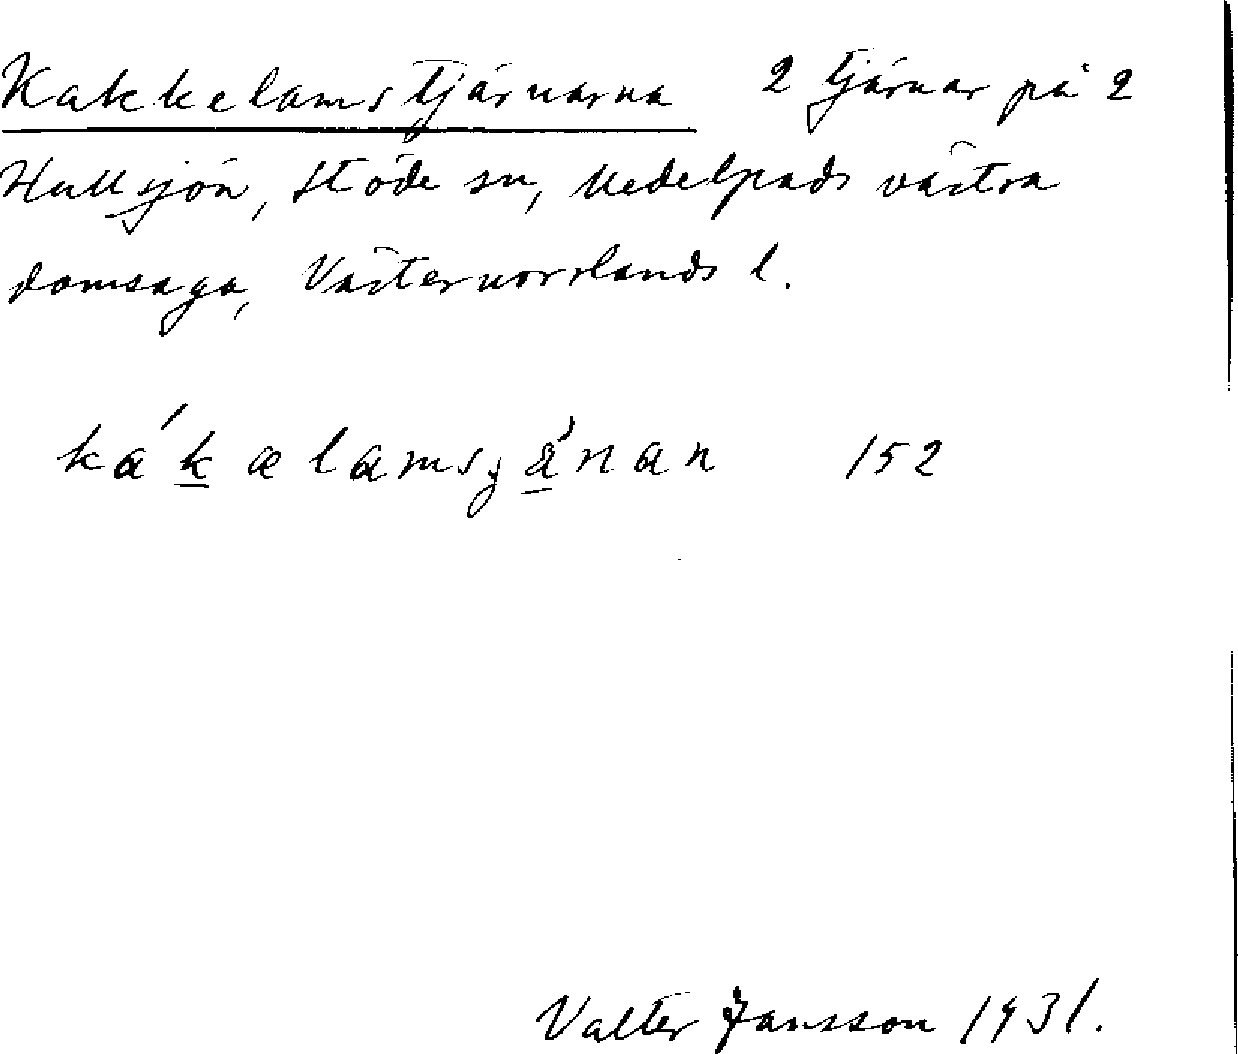 Kakkelamstjärnarna 2 tjärnar på 2
Hullsjön, Stöde sn, Medelpads västra
domsaga, Västernorrlands l.
ká´kælamsȷänan 152
Valter Jansson 1931.